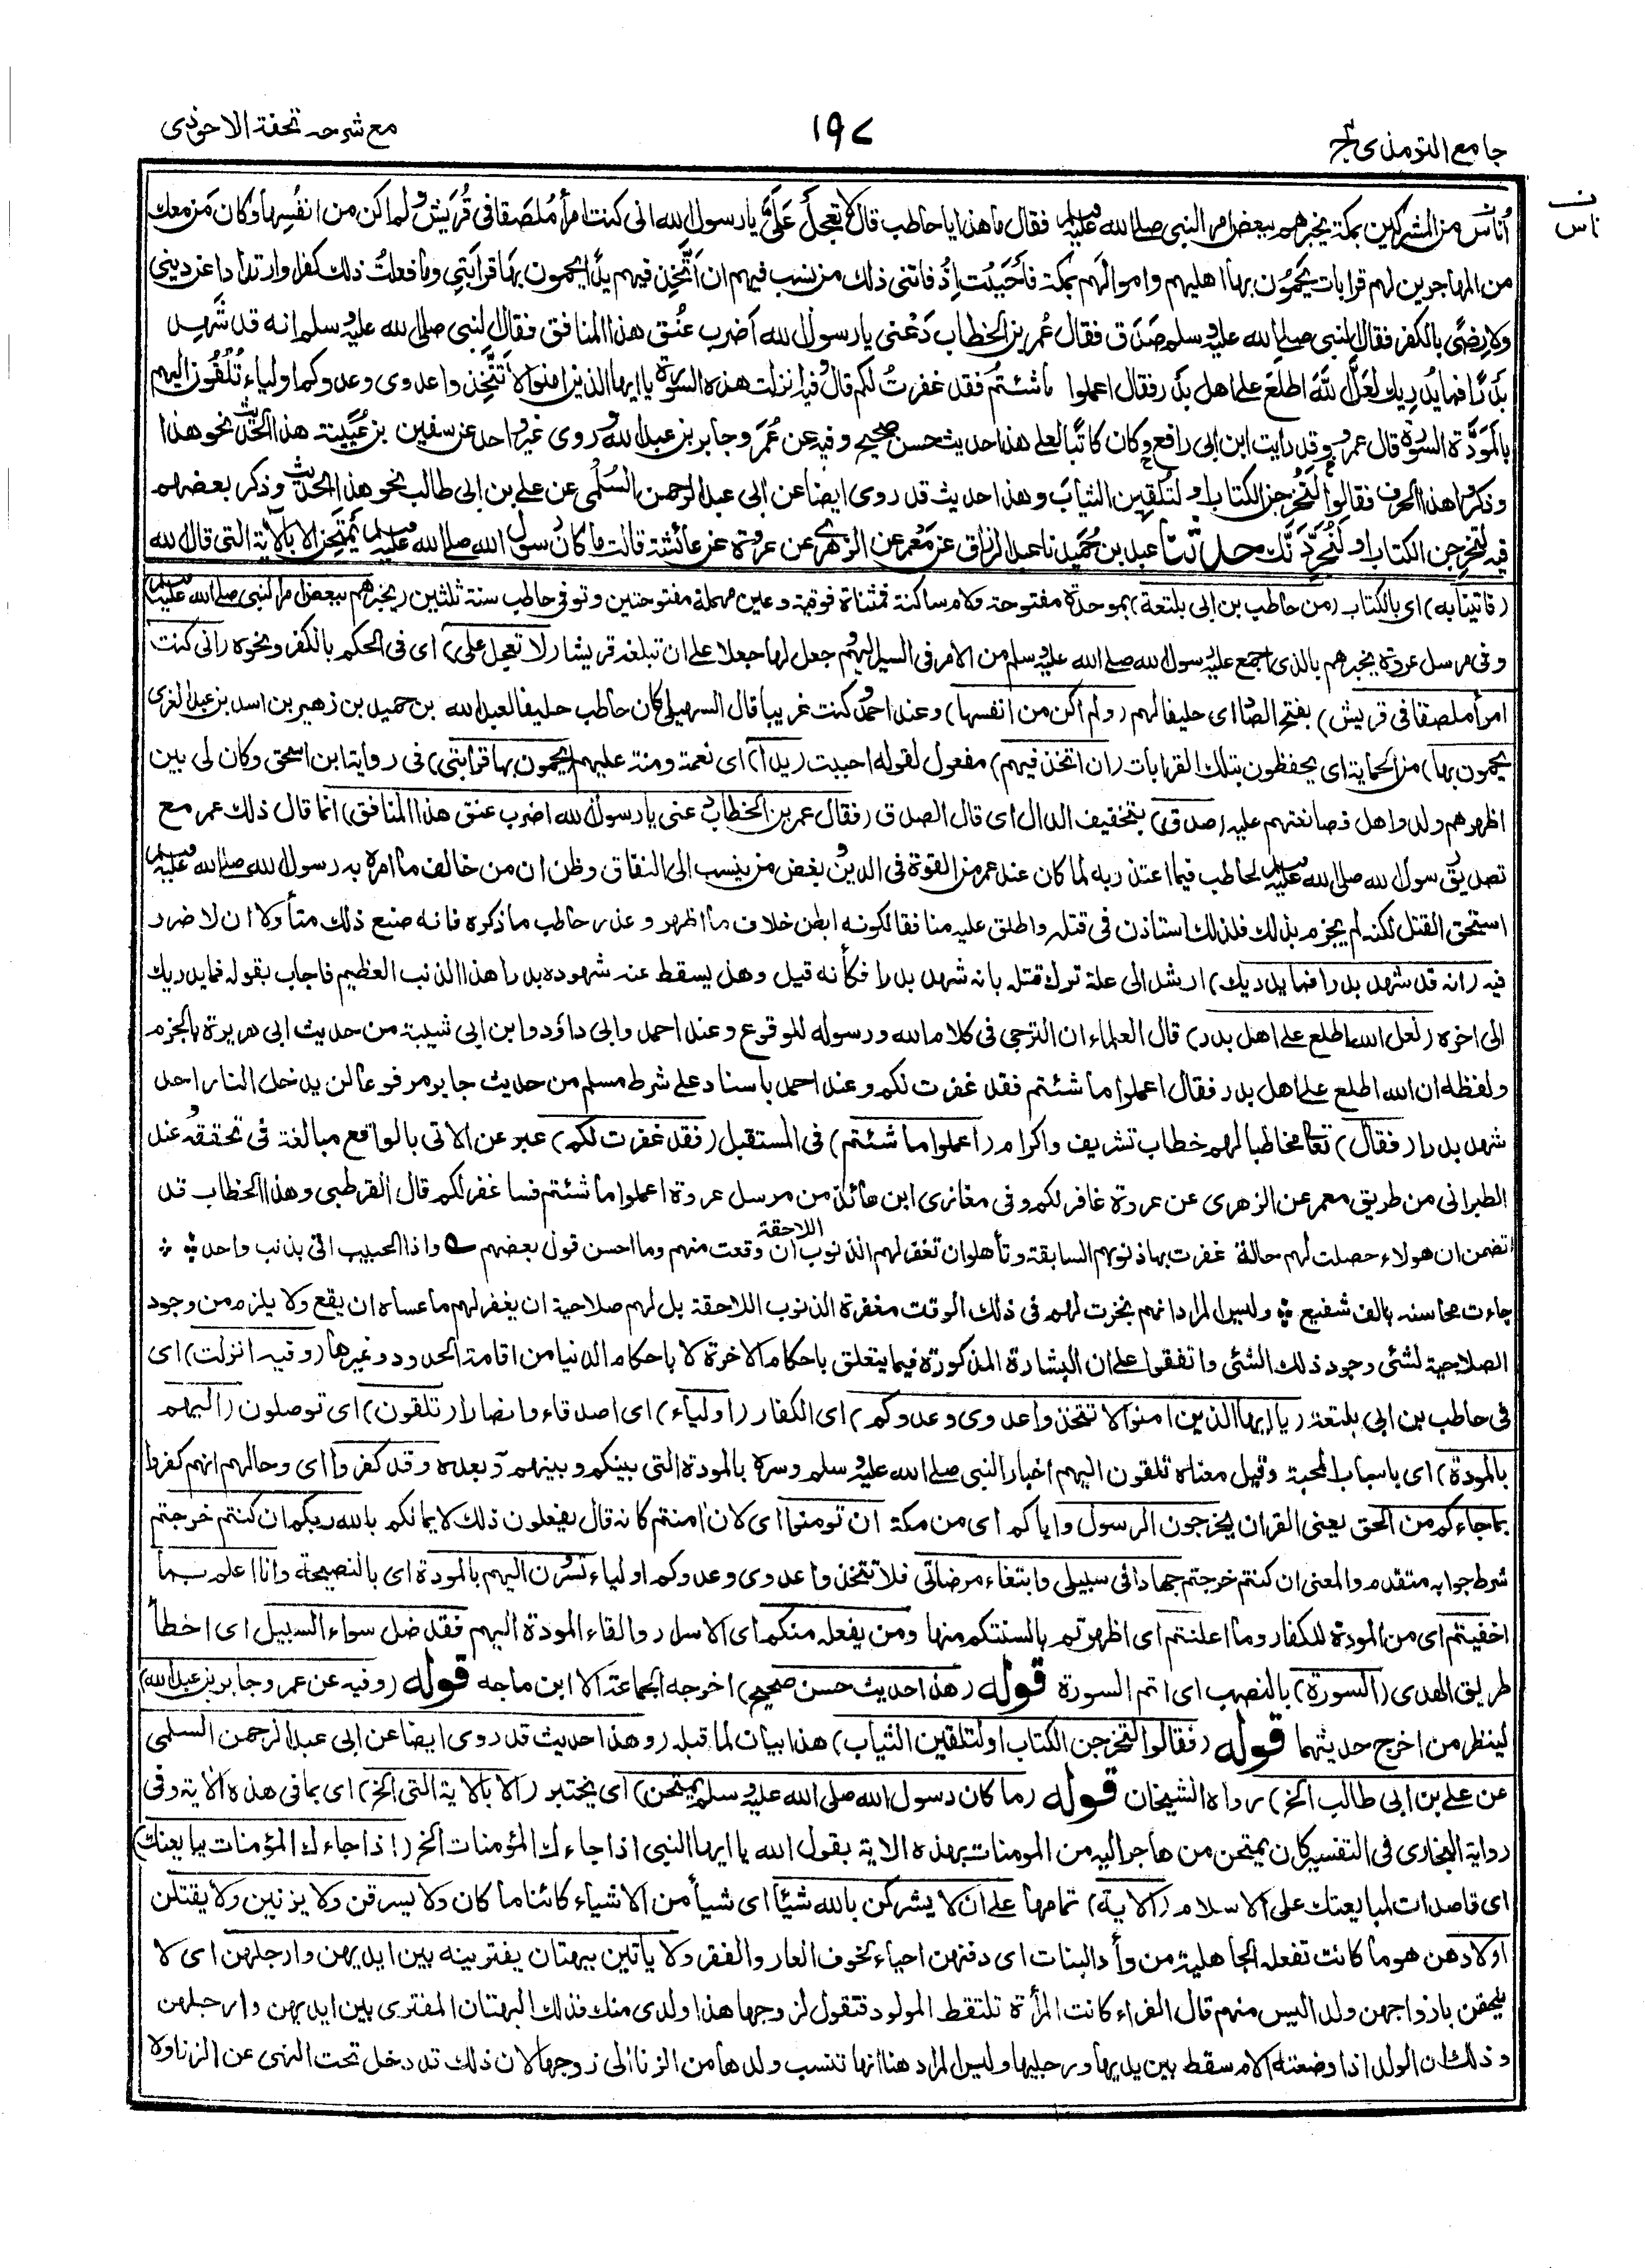 جامع الترمذى ج
١٩٧
مع شرحه تحفة الاحوذى
ناس
أناس من المشركين بمكة يخبرهم ببعض امر النبى صلى الله عليه وسلم فقال ما هذا يا حاطب قال لا تعجل عَلَىَّ يا رسول الله انى كنت امرأ مُلصَقا فى قُريش ولم اكن من انفُسِها وكان مَن معك
من المهاجرين لهم قرابات يَحمُون بها اهليهم واموالهم بمكة فأحبَبْت اِذْ فاتنى ذلك من نسب فيهم ان اتَّخِذ فيهم يدًا يحمون بها قرابتِى وما فعلتُ ذلك كفرا وارتدادا عن دينى
ولا رِضًى بالكفر فقال النبى صلى الله عليه وسلم صَدَق فقال عُمر بن الخطاب دَعْنى يا رسول الله أضرب عُنُق هذا المنافق فقال النبى صلى الله عليه وسلم انه قد شَهِد
بَدرًا فما يُدرِيك لعَلَّ اللّهَ اطلَعَ على اهل بَدر فقال اعملوا ما شئتُم فقد غفرتُ لكم قال وفيه انزلت هذه السُورة يا ايها الذين امنوا لا تَتَّخِذوا عدوى وعدوكم اولياء تُلْقُون اليهم
بالمَوَدَّة السورة قال عمرو وقد رايت ابن ابى رافع وكان كاتبًا لعلى هذا حديث حسن صحيح وفيه عن عُمَرَ وجابر بن عبد الله وروى غير واحد عن سفين بن عُيَينة هذا الحديث نحو هذا
وذكروا هذا الحرف فقالوا لَتُخرِجِن الكتاب او لتُلقِين الثيابَ وهذا حديث قد روى ايضا عن ابى عبد الرحمن السُلَمى عن على بن ابى طالب نحو هذا الحديث وذكر بعضهم
فيه لتُخرِجِن الكتاب او لَنُجَرِّدَنَّك حدثنا عبد بن حُمَيد نا عبد الرزاق عن مَعمر عن الزهرى عن عروة عن عائشة قالت ما كان رسول الله صلى الله عليه وسلم يَمتَحِن الا بالآية التى قال الله
(فاتينا به) اى بالكتاب (من حاطب بن ابى بلتعة) بموحدة مفتوحة ولام ساكنة فمثناة فوقية وعين مهملة مفتوحتين وتوفى حاطب سنة ثلثين (يخبرهم ببعض امر النبى صلى الله عليه وسلم)
وفى مرسل عروة يخبرهم بالذى اجمع عليه رسول الله صلى الله عليه وسلم من الأمر فى السير اليهم وجعل لها جعلا على ان تبلغه قريشا (لا تعجل على) اى فى الحكم بالكفر ونحوه (انى كنت
امرأ ملصقا فى قريش) بفتح الصاد اى حليفا لهم (ولم اكن من انفسها) وعند احمد وكنت غريبا قال السهيلى كان حاطب حليفا لعبد الله بن حميد بن زهير بن اسد بن عبد العزى
(يحمون بها) من الحماية اى يحفظون بتلك القرابات (ان اتخذ فيهم) مفعول لقوله احببت (يدا) اى نعمة ومنة عليهم (يحمون بها قرابتى) فى رواية ابن اسحق وكان لى بين
اظهرهم ولد واهل فصانعتهم عليه (صدق) بتخفيف الدال اى قال الصدق (فقال عمر بن الخطاب دعنى يا رسول الله اضرب عنق هذا المنافق) انما قال ذلك عمر مع
تصديق رسول الله صلى الله عليه وسلم لحاطب فيما اعتذر به لما كان عند عمر من القوة فى الدين وبغض من ينسب الى النفاق وظن ان من خالف ما امره به رسول الله صلى الله عليه وسلم
استحق القتل لكنه لم يجزم بذلك فلذلك استاذن فى قتله واطلق عليه منافقا لكونه ابطن خلاف ما اظهر وعذر حاطب ما ذكره فانه صنع ذلك متأولا ان لا ضرر
فيه (انه قد شهد بدرا فما يدريك) ارشد الى علة ترك قتله بانه شهد بدرا فكأنه قيل وهل يسقط عنه شهوده بدرا هذا الذنب العظيم فاجاب بقوله فما يدريك
الى اخره (لعل الله اطلع على اهل بدر) قال العلماء ان الترجى فى كلام الله ورسوله للوقوع وعند احمد وابى داؤد وابن ابى شيبة من حديث ابى هريرة بالجزم
ولفظه ان الله اطلع على اهل بدر فقال اعملوا ما شئتم فقد غفرت لكم وعند احمد باسناد على شرط مسلم من حديث جابر مرفوعا لن يدخل النار احد
شهد بدرا (فقال) تعالى مخاطبا لهم خطاب تشريف واكرام (اعملوا ما شئتم) فى المستقبل (فقد غفرت لكم) عبر عن الاتى بالواقع مبالغة فى تحققه وعند
الطبرانى من طريق معمر عن الزهرى عن عروة غافر لكم وفى مغازى ابن عائذ من مرسل عروة اعملوا ما شئتم فساغفر لكم قال القرطبى وهذا الخطاب قد
تضمن ان هولاء حصلت لهم حالة غفرت بها ذنوبهم السابقة وتأهلوا ان تغفر لهم الذنوب اللاحقة ان وقعت منهم وما احسن قول بعضهم واذا الحبيب اتى بذنب واحد
جاءت محاسنه بالف شفيع وليس المراد انهم نجزت لهم فى ذلك الوقت مغفرة الذنوب اللاحقة بل لهم صلاحية ان يغفر لهم ما عساه ان يقع ولا يلزم من وجود
الصلاحية لشئى وجود ذلك الشئى واتفقوا على ان البشارة المذكورة فيما يتعلق باحكام الاخرة لا باحكام الدنيا من اقامة الحدود وغيرها (وفيه انزلت) اى
فى حاطب بن ابى بلتعة (يا ايها الذين امنوا لا تتخذوا عدوى وعدوكم) اى الكفار (اولياء) اى اصدقاء وانصارا (تلقون) اى توصلون (اليهم
بالمودة) اى باسباب المحبة وقيل معناه تلقون اليهم اخبار النبى صلى الله عليه وسلم وسره بالمودة التى بينكم وبينهم وبعده وقد كفروا اى وحالهم انهم كفروا
بما جاءكم من الحق يعنى القران يخرجون الرسول واياكم اى من مكة ان تومنوا اى لان امنتم كانه قال يفعلون ذلك لايمانكم بالله ربكم ان كنتم خرجتم
شرط جوابه متقدم والمعنى ان كنتم خرجتم جهادا فى سبيلى وابتغاء مرضاتى فلا تتخذوا عدوى وعدوكم اولياء تسرون اليهم بالمودة اى بالنصيحة وانا اعلم بما
اخفيتم اى من المودة للكفار وما اعلنتم اى اظهرتم بالسنتكم منها ومن يفعله منكم اى الاسرار والقاء المودة اليهم فقد ضل سواء السبيل اى اخطأ
طريق الهدى (السورة) بالنصب اى اتم السورة قوله (هذا حديث حسن صحيح) اخرجه الجماعة الا ابن ماجه قوله (وفيه عن عمر وجابر بن عبد الله)
لينظر من اخرج حديثهما قوله (فقالوا لتخرجن الكتاب او لتلقين الثياب) هذا بيان لما قبله (وهذا حديث قد روى ايضا عن ابى عبد الرحمن السلمى
عن على بن ابى طالب الخ) رواه الشيخان قوله (ما كان رسول الله صلى الله عليه وسلم يمتحن) اى يختبر (الا بالاية التى الخ) اى بما فى هذه الاية وفى
رواية البخارى فى التفسير كان يمتحن من هاجر اليه من المومنات بهذه الاية بقول الله يا ايها النبى اذا جاءك المؤمنات الخ (اذا جاءك المؤمنات يبايعنك)
اى قاصدات لمبايعتك على الاسلام (الاية) تمامها على ان لا يشركن بالله شيئا اى شيأ من الاشياء كائنا ما كان ولا يسرقن ولا يزنين ولا يقتلن
اولادهن هو ما كانت تفعله الجاهلية من وأد البنات اى دفنهن احياء لخوف العار والفقر ولا يأتين ببهتان يفترينه بين ايديهن وارجلهن اى لا
يلحقن بازواجهن ولدا ليس منهم قال الفراء كانت المرأة تلتقط المولود فتقول لزوجها هذا ولدى منك فذلك البهتان المفترى بين ايديهن وارجلهن
وذلك ان الولد اذا وضعته الام سقط بين يديها ورجليها وليس المراد هنا انها تنسب ولدها من الزنا الى زوجها لان ذلك قد دخل تحت النهى عن الزنا ولا